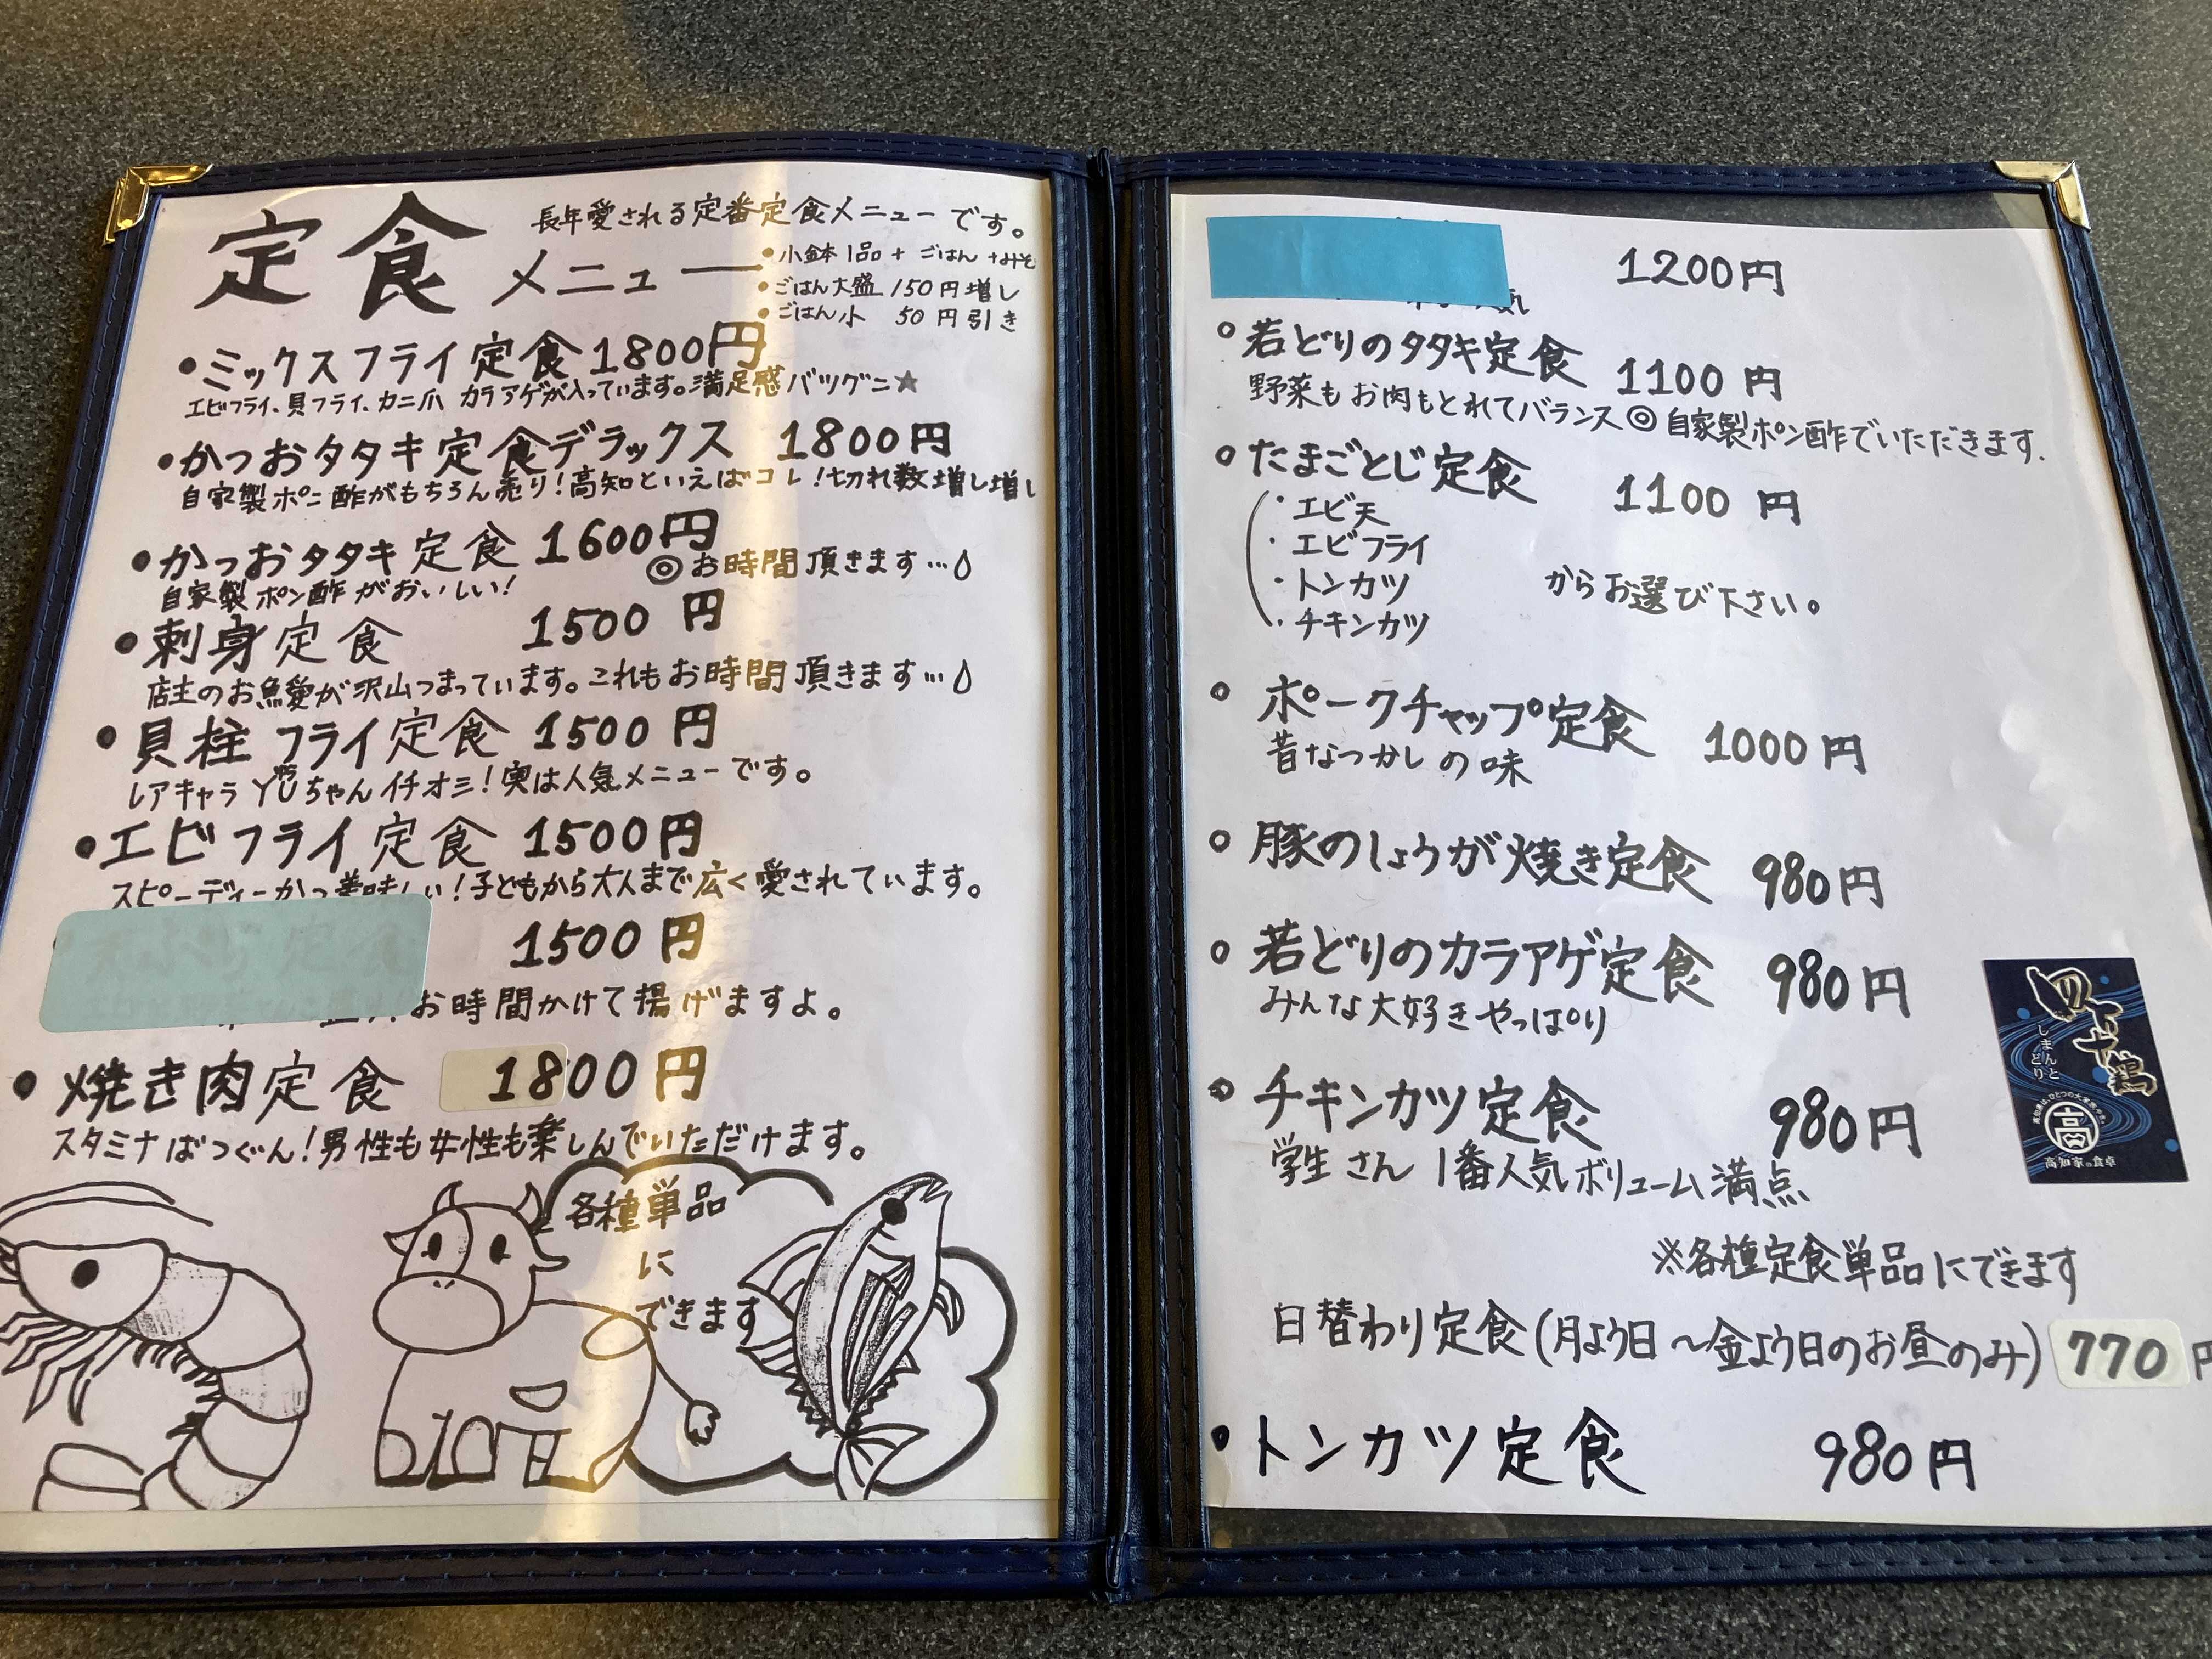 定食メニュー
長年愛される定番定食メニューです。
•小鉢1品+ごはん+みそ
•ごはん大盛 150円増し
•ごはん小 50円引き
•ミックスフライ定食 1800円
エビフライ、貝フライ、カニ爪 カラアゲが入っています。満足感バツグン★
•かつおタタキ定食デラックス 1800円
自家製ポン酢がもちろん売り!高知といえばコレ!切れ数増し増し
•かつおタタキ定食 1600円
自家製ポン酢がおいしい!
◎お時間頂きます…
•刺身定食 1500円
店主のお魚愛が沢山つまっています。これもお時間頂きます…
•貝柱フライ定食 1500円
レアキャラ YUちゃんイチオシ!実は人気メニューです。
•エビフライ定食 1500円
スピーディーかつ美味しい!子どもから大人まで広く愛されています。
天ぷら定食 1500円
お時間かけて揚げますよ。
•焼き肉定食 1800円
スタミナばつぐん!男性も女性も楽しんでいただけます。
各種単品
に
できます
1200円
○若どりのタタキ定食 1100円
野菜もお肉もとれてバランス◎自家製ポン酢でいただきます.
○たまごとじ定食 1100円
・エビ天
・エビフライ
・トンカツ
・チキンカツ
からお選び下さい。
○ポークチャップ定食 1000円
昔なつかしの味
○豚のしょうが焼き定食 980円
○若どりのカラアゲ定食 980円
みんな大好きやっぱり
○チキンカツ定食 980円
学生さん1番人気ボリューム満点
※各種定食単品にできます
日替わり定食(月よう日〜金よう日のお昼のみ) 770円
•トンカツ定食 980円
四万十鶏
しまんと
どり
高
高知家の食卓